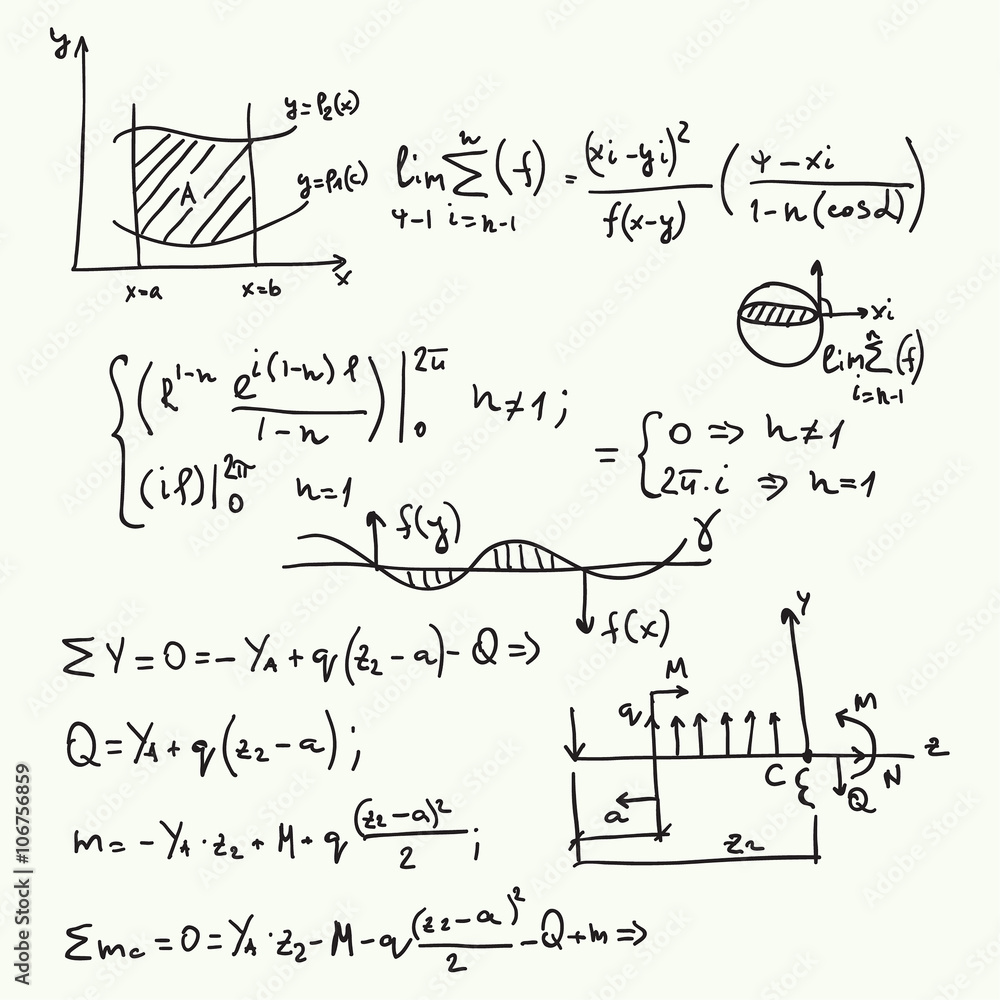 y
y=f₂(x)
y=f₁(c)
A
x=a x=b x
lim Σ (f) = (xi-yi)² / f(x-y) (4-xi / 1-n(cosα))
4-1 i=n-1 n
xi
lim Σ (f)
n i=n-1
{ (R^(1-n) e^(i(1-n)φ) / 1-n) |₀^2π n≠1;
(iφ)|₀^2π n=1
= { 0 ⇒ n≠1
2π·i ⇒ n=1
f(y) γ
f(x)
ΣY=0=-Y_A+q(z₂-a)-Q⇒
Q=Y_A+q(z₂-a);
m=-Y_A·z₂+M+q (z₂-a)²/2;
Σm_c=0=Y_A·z₂-M-q (z₂-a)²/2 -Q+m⇒
Y
M
q M
z
C N
Q
a
z₂
Adobe Stock | #106756859